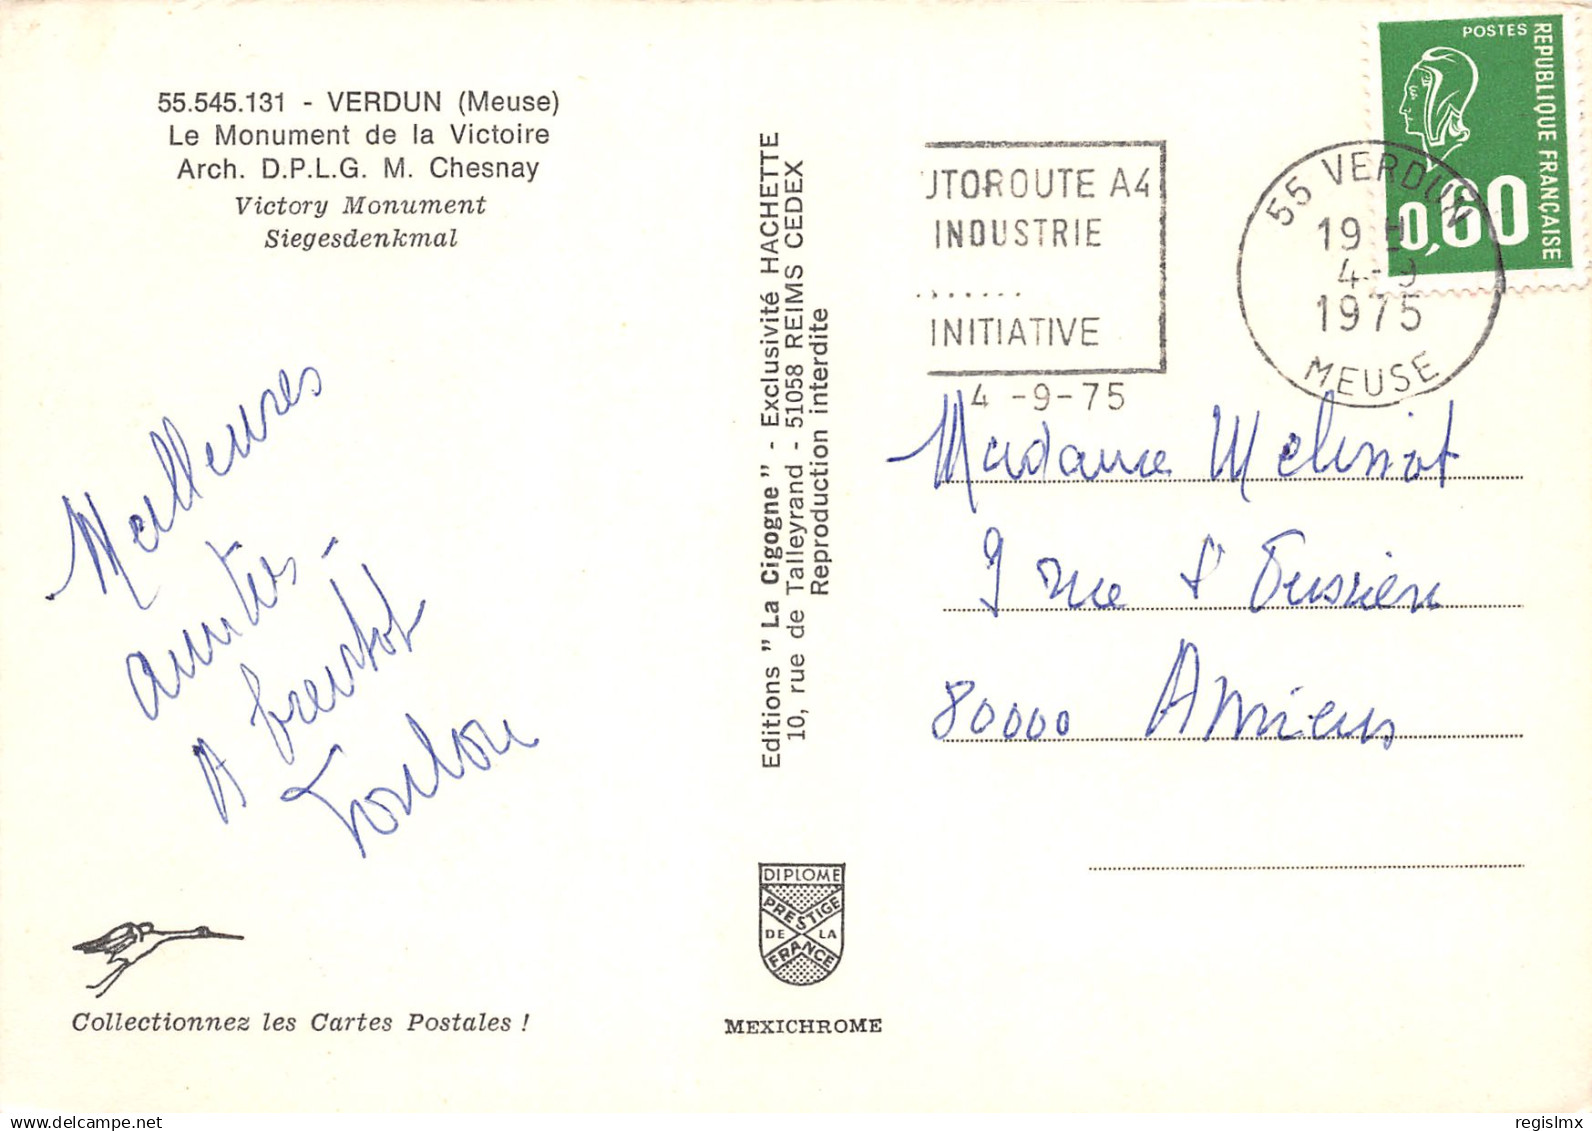 55.545.131 - VERDUN (Meuse)
Le Monument de la Victoire
Arch. D.P.L.G. M. Chesnay
Victory Monument
Siegesdenkmal
Meilleures
amitiés -
A bientôt
Collectionnez les Cartes Postales !
Editions " La Cigogne " - Exclusivité HACHETTE
10, rue de Talleyrand - 51058 REIMS CEDEX
Reproduction interdite
DIPLOME
PRESTIGE
DE LA
FRANCE
MEXICHROME
UTOROUTE A4
INDUSTRIE
.......
INITIATIVE
4 -9-75
POSTES
REPUBLIQUE FRANÇAISE
0,60
55 VERDUN
19 H
4-9
1975
MEUSE
Madame
9 rue
80000 Amiens
regislmx